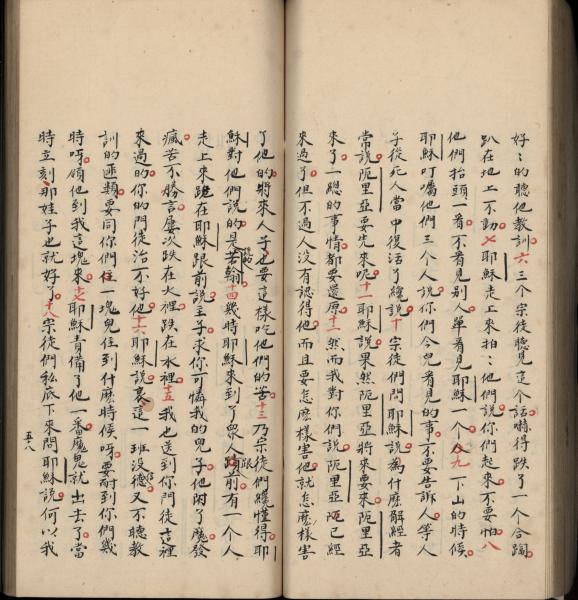 好〻的聽他教訓六三个宗徒聽見這个話嚇得跌了一个合蹋
趴在地上不動七耶穌走上來拍〻他們說你們起來不要怕八
他們抬頭一看不看見别人單看見耶穌一个人九下山的時候
耶穌叮囑他們三个人說你們今兒看見的事不要告訴人等人
子從死人當中復活了纔說十宗徒們問耶穌說為什麽解經者
常說阨里亞要先來呢十一耶穌說果然阨里亞將來要來阨里亞
來了一總的事情都要還原十二然而我對你們說阨里亞阨已經
來過了但不過人没有認得他而且要怎麽樣害他就怎麽樣害
了他的將來人子也要這樣吃他們的苦十三乃宗徒們纔懂得耶
穌對他們說的是若翰十四幾時耶穌來到了眾人跟前有一个人
走上來跪在耶穌跟前說主子求你可憐我的兒子他附了魔發
瘋苦不勝言屢次跌在火裡跌在水裡十五我也送到你門徒這裡
來過的你的門徒治不好他十六耶穌說哀這一班没德又不聽教
訓的匪類要同你們住一塊兒住到什麽時候呀要耐到你們幾
時呀領他到我這塊來十七耶穌責備了他一番魔鬼就出去了當
時立刻那娃子也就好了十八宗徒們私底下來問耶穌說何以我
五八